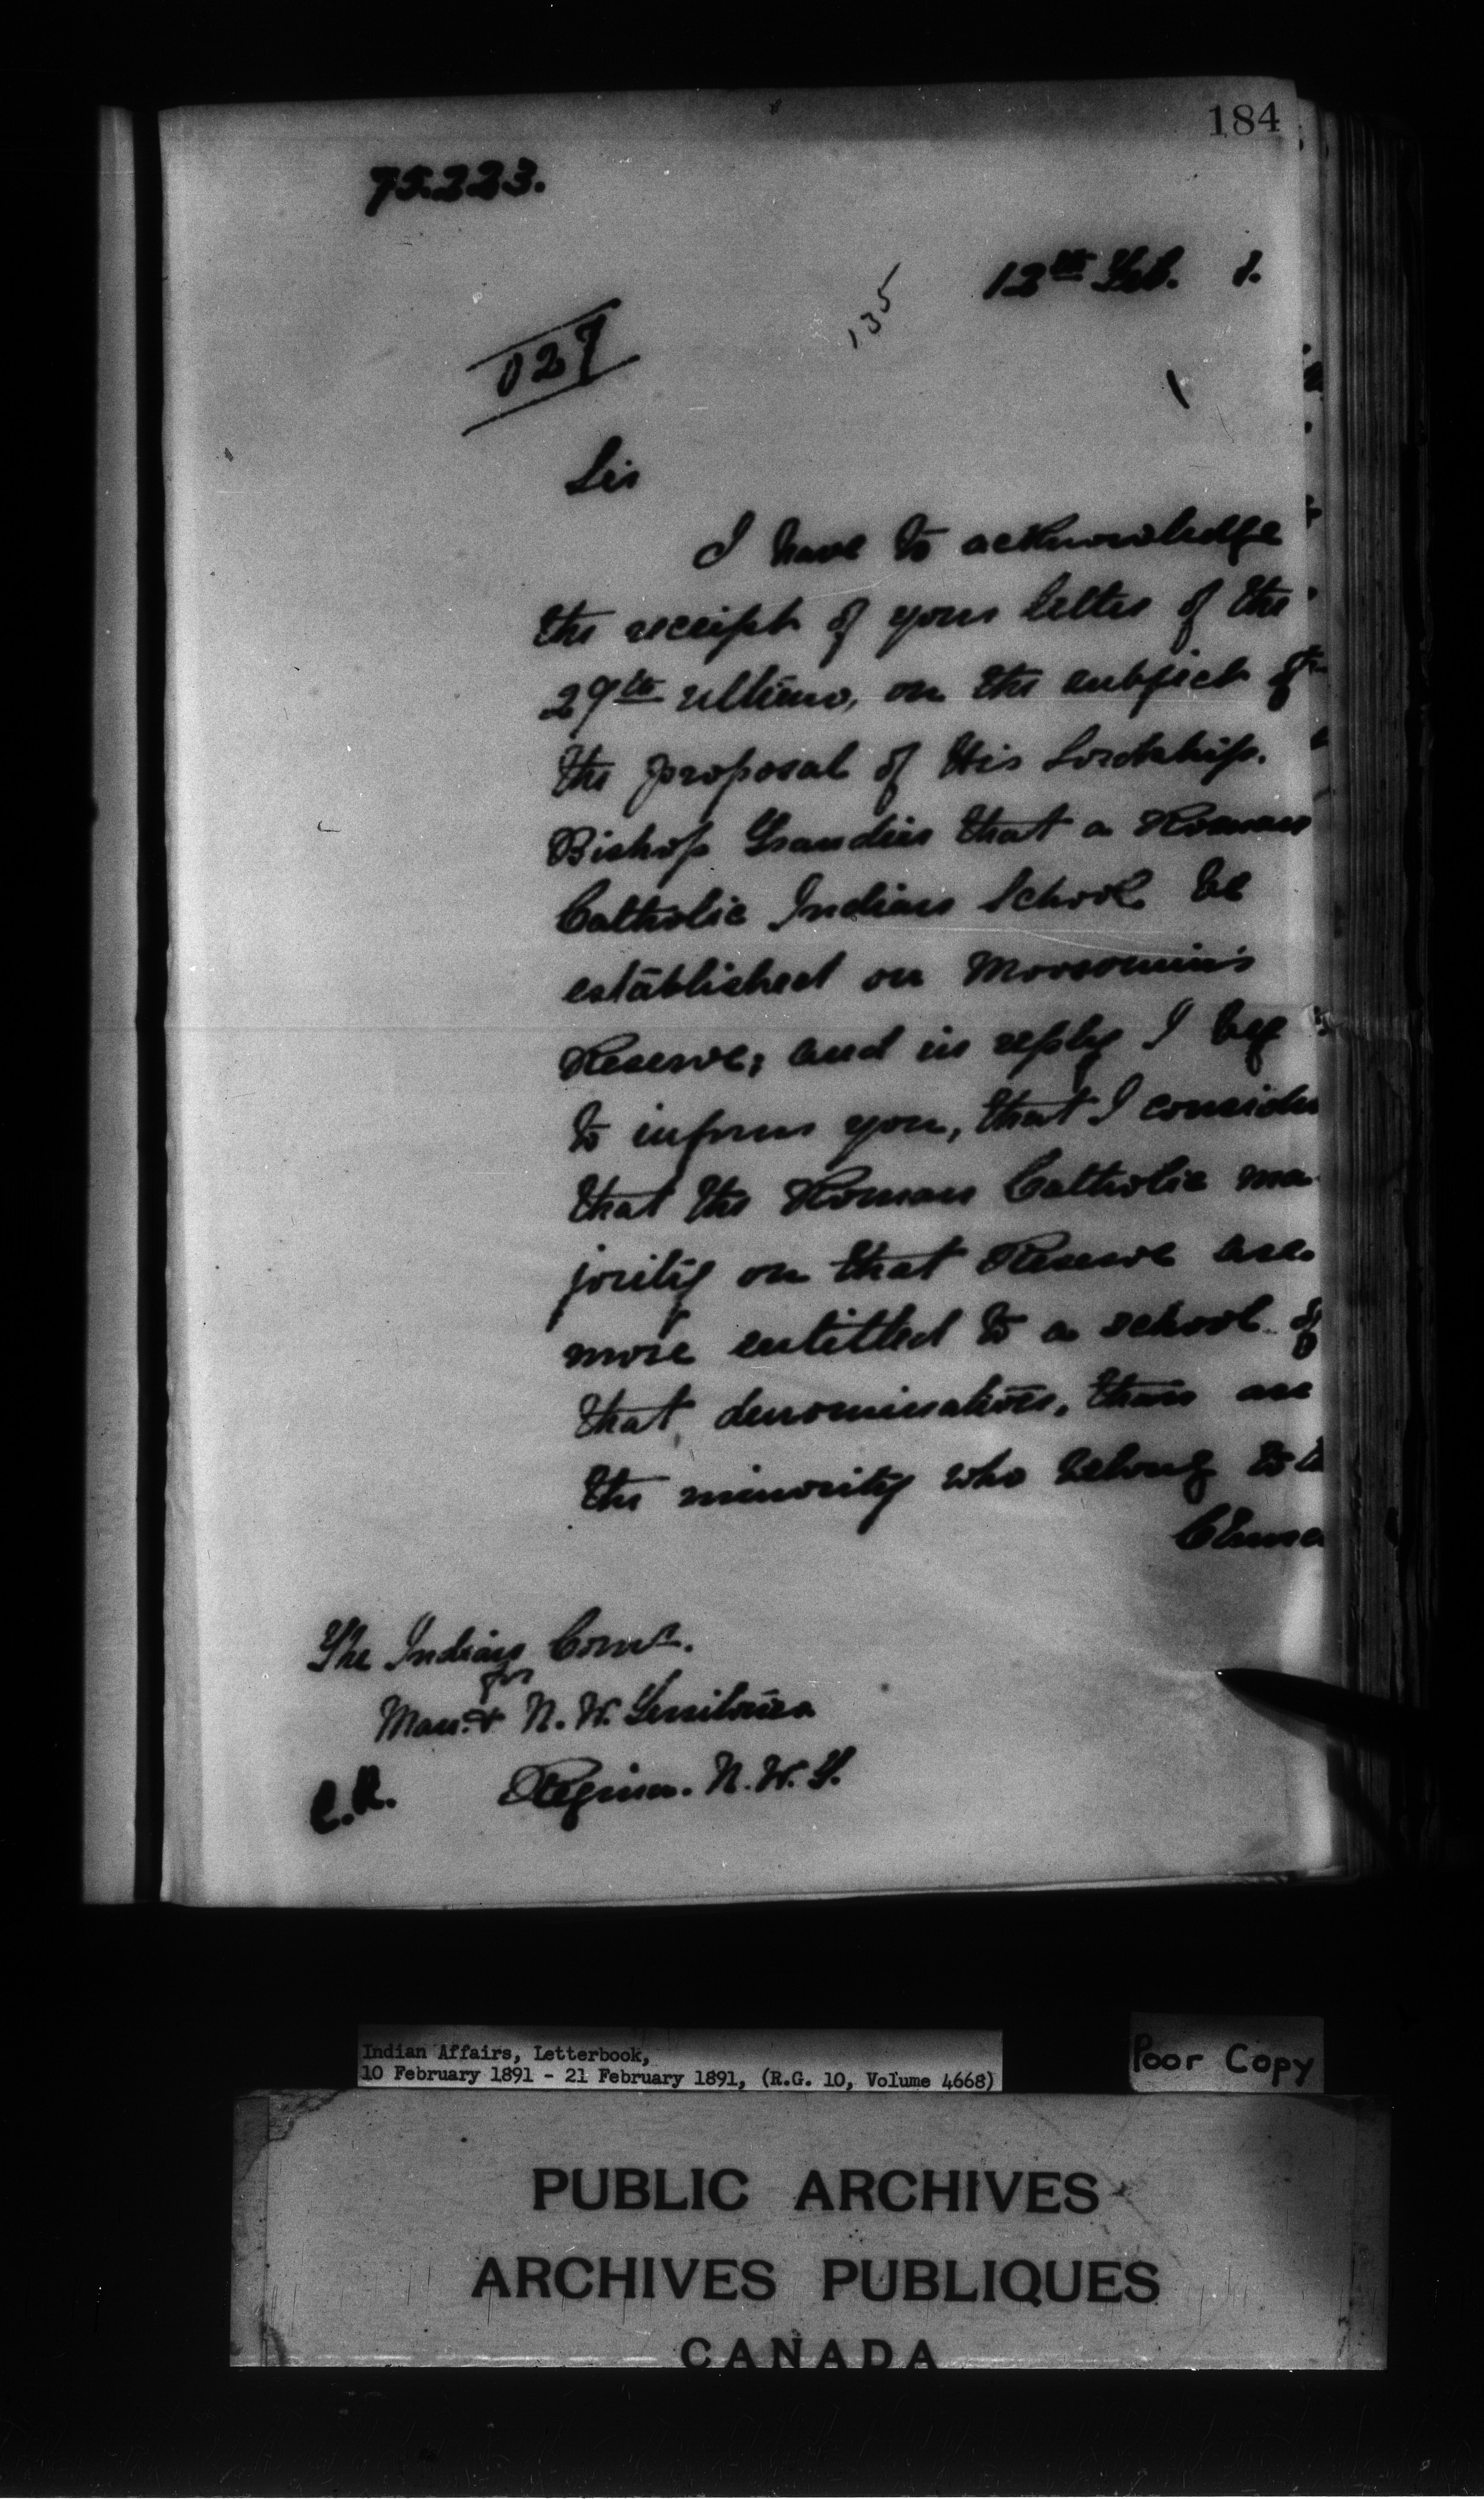 184
75.223.
12th Feb. 1.
135
027
Sir
I have to acknowledge
the receipt of your letter of the
29th ultimo, on the subject of
the proposal of His Lordship.
Bishop Grandin that a Roman
Catholic Indian School be
established on Moosomin's
Reserve; and in reply I beg
to inform you, that I consider
that the Roman Catholic ma-
jority on that Reserve are
more entitled to a school of
that denomination, than are
the minority who belong to
The Indian Comr.
for
Man. & N. W. Territories
Regina. N. W. T.
C.R.
Indian Affairs, Letterbook,
10 February 1891 - 21 February 1891, (R.G. 10, Volume 4668)
Poor Copy
PUBLIC ARCHIVES
ARCHIVES PUBLIQUES
CANADA